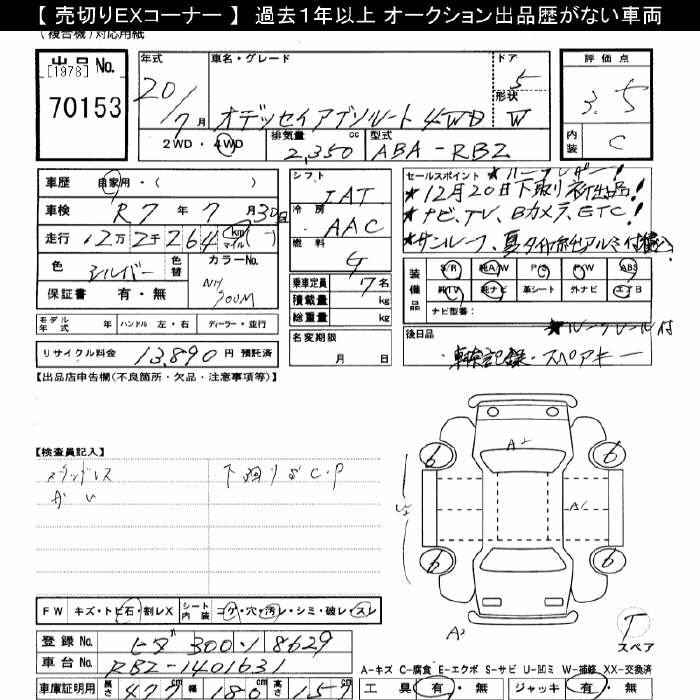 【 売切りEXコーナー 】 過去1年以上 オークション出品歴がない車両
(複合機)対応用紙
出品 No.
[1978]
70153
年式
20/7月
車名・グレード
オデッセイアブソルート 4WD
ドア
5
形状
W
2WD・4WD
排気量
2,350 cc
型式
ABA-RB2
評価点
3.5
内装
C
車歴 自家用・( )
車検 R7年7月30日
走行 12万2千264 km マイル ( )
色 シルバー 色替
カラーNo. NH 700M
保証書 有・無
モデル年式 年 ハンドル 左・右 ディーラー・並行
リサイクル料金 13,890円 預託済
シフト IAT
冷房 AAC
燃料 G
乗車定員 7名
積載量 kg
総重量 kg
名変期限 月 日
セールスポイント ★ルーフレザー!
★12月20日下取り 初出品!
★ナビ、TV、Bカメラ、ETC!
★サンルーフ、夏タイヤ純正アルミ付積込
装備品 S/R 純A/W P/S P/W ABS
純TV 純ナビ 革シート 外ナビ エアB
ナビ型番:
★ルーフレール付
後日品
・車検記録・スペアキー
【出品店申告欄(不良箇所・欠品・注意事項等)】
【検査員記入】
下廻りS C・P
A2
6 6
AC
6 6
A2
T
スペア
FW キズ・トビ石・割レX シート内装 コゲ・穴・汚レ・シミ・破レ・スレ
登録 No. 300 8629
車台 No. RB2-1401631
車庫証明用 長さ 477cm 幅 180cm 高さ 157cm
A-キズ C-腐食 E-エクボ S-サビ U-凹ミ W-補修 XX-交換済
工具 有・無 ジャッキ 有・無